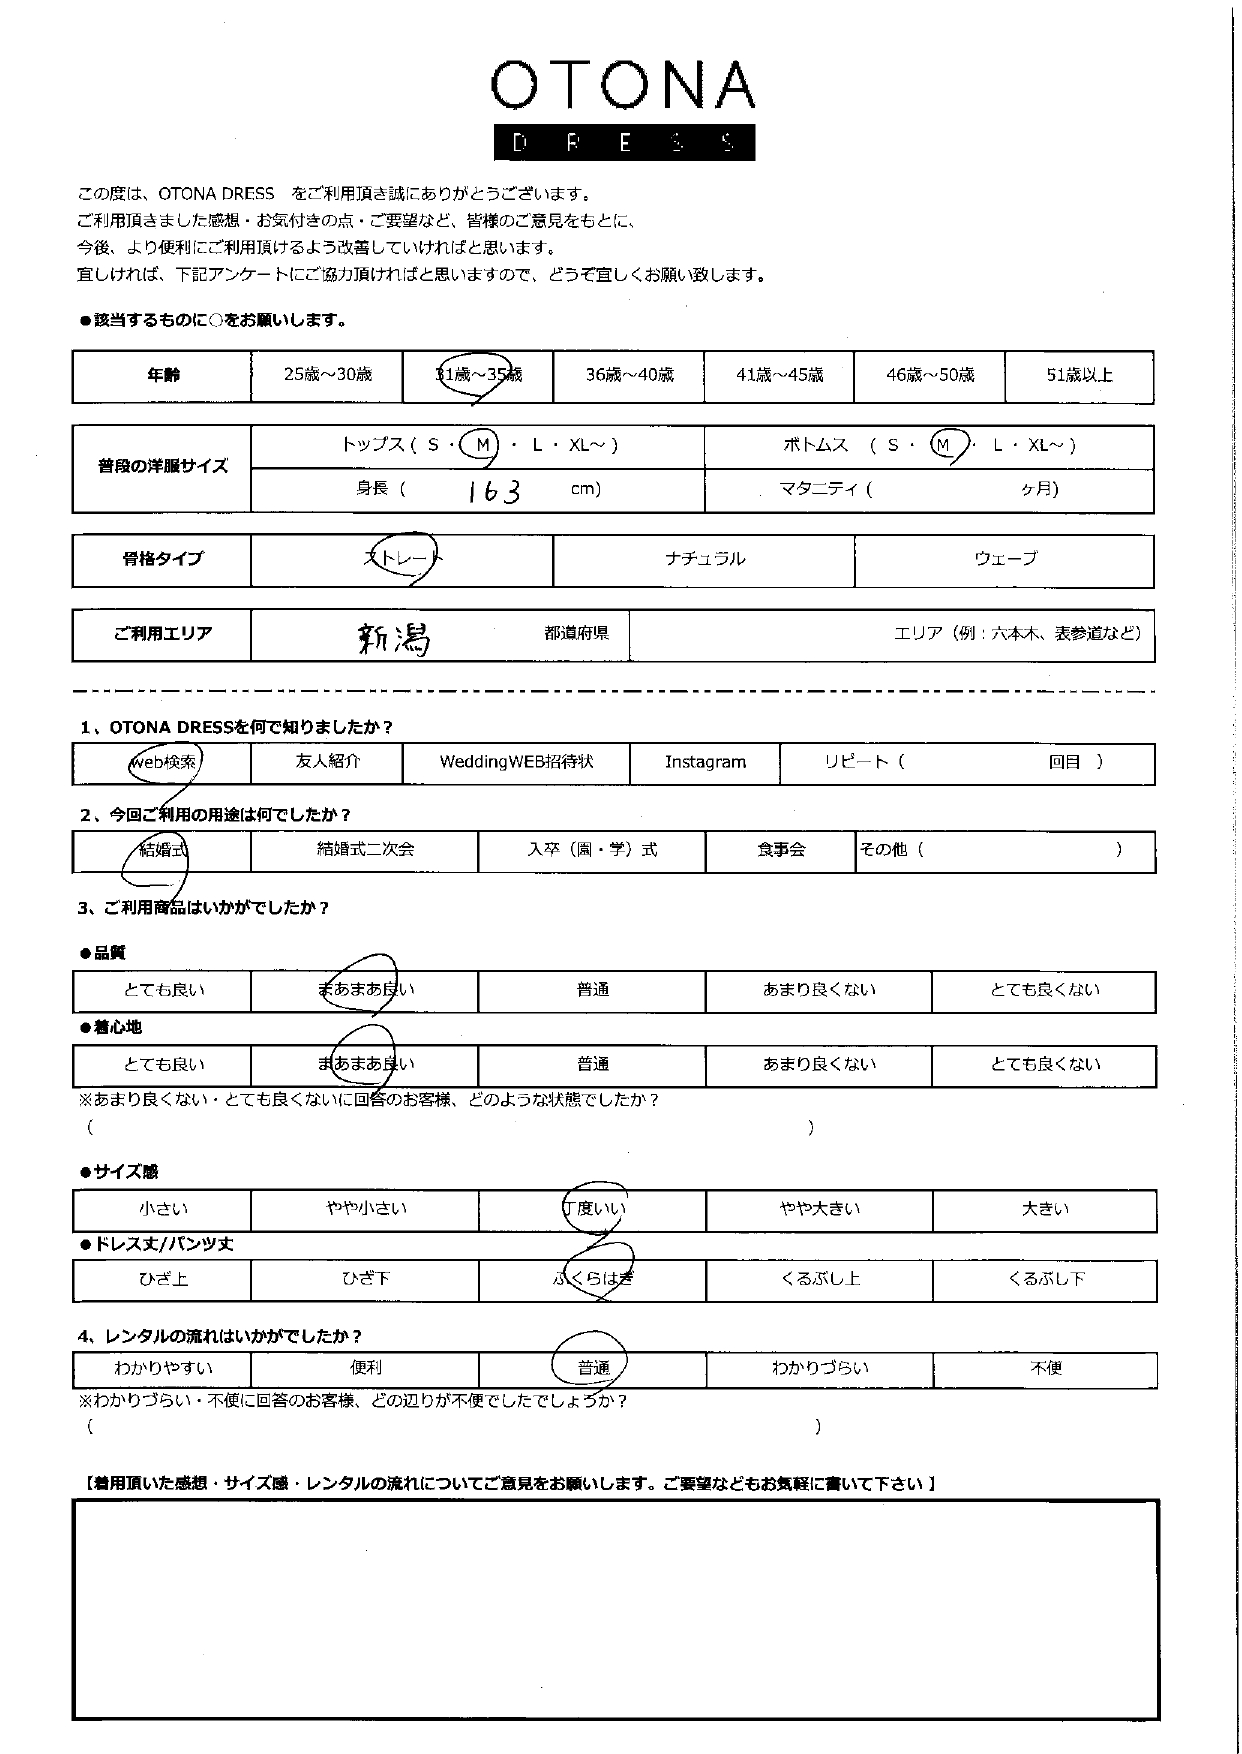 OTONA
DRESS
この度は、OTONA DRESS をご利用頂き誠にありがとうございます。
ご利用頂きました感想・お気付きの点・ご要望など、皆様のご意見をもとに、
今後、より便利にご利用頂けるよう改善していければと思います。
宜しければ、下記アンケートにご協力頂ければと思いますので、どうぞ宜しくお願い致します。
●該当するものに○をお願いします。
年齢 25歳～30歳 31歳～35歳 36歳～40歳 41歳～45歳 46歳～50歳 51歳以上
普段の洋服サイズ トップス ( S ・ M ・ L ・ XL～ ) ボトムス ( S ・ M ・ L ・ XL～ )
身長 ( 163 cm) マタニティ ( ヶ月)
骨格タイプ ストレート ナチュラル ウェーブ
ご利用エリア 新潟 都道府県 エリア（例：六本木、表参道など）
1、OTONA DRESSを何で知りましたか？
web検索 友人紹介 WeddingWEB招待状 Instagram リピート（ 回目 ）
2、今回ご利用の用途は何でしたか？
結婚式 結婚式二次会 入卒（園・学）式 食事会 その他（ ）
3、ご利用商品はいかがでしたか？
●品質
とても良い まあまあ良い 普通 あまり良くない とても良くない
●着心地
とても良い まあまあ良い 普通 あまり良くない とても良くない
※あまり良くない・とても良くないに回答のお客様、どのような状態でしたか？
（ ）
●サイズ感
小さい やや小さい 丁度いい やや大きい 大きい
●ドレス丈/パンツ丈
ひざ上 ひざ下 ふくらはぎ くるぶし上 くるぶし下
4、レンタルの流れはいかがでしたか？
わかりやすい 便利 普通 わかりづらい 不便
※わかりづらい・不便に回答のお客様、どの辺りが不便でしたでしょうか？
（ ）
【着用頂いた感想・サイズ感・レンタルの流れについてご意見をお願いします。ご要望などもお気軽に書いて下さい 】